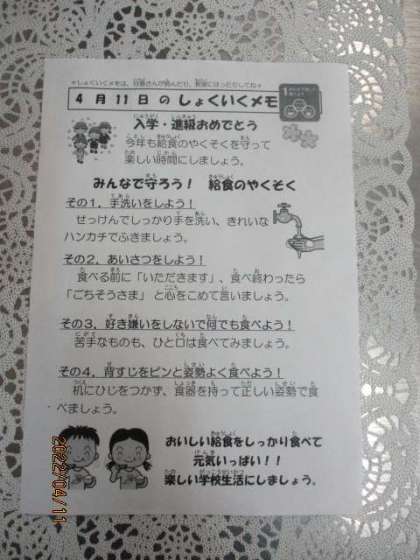 ＊しょくいくメモは、給食の時間に読んだり、教室にはったりしてね＊
4月11日のしょくいくメモ
入学・進級おめでとう
今年も給食のやくそくを守って
楽しい時間にしましょう。
みんなで守ろう！ 給食のやくそく
その1，手洗いをしよう！
せっけんでしっかり手を洗い、きれいな
ハンカチでふきましょう。
その2，あいさつをしよう！
食べる前に「いただきます」、食べ終わったら
「ごちそうさま」と心をこめて言いましょう。
その3，好き嫌いをしないで何でも食べよう！
苦手なものも、ひと口は食べてみましょう。
その4，背すじをピンと姿勢よく食べよう！
机にひじをつかず、食器を持って正しい姿勢で食
べましょう。
おいしい給食をしっかり食べて
元気いっぱい！！
楽しい学校生活にしましょう。
2022/04/11